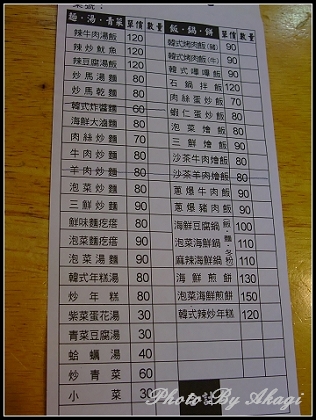 桌號：
麵·湯·青菜 單價 數量
辣牛肉湯飯 120
辣炒魷魚 120
辣豆腐湯飯 120
炒馬湯麵 80
炒馬乾麵 80
韓式炸醬麵 60
海鮮大滷麵 80
肉絲炒麵 70
牛肉炒麵 80
羊肉炒麵 80
泡菜炒麵 80
三鮮炒麵 90
鮮味麵疙瘩 80
泡菜麵疙瘩 90
泡菜湯麵 90
韓式年糕湯 80
炒年糕 80
紫菜蛋花湯 30
青菜豆腐湯 30
蛤蠣湯 40
炒青菜 60
小菜 30
飯·鍋·餅 單價 數量
韓式烤肉飯(豬) 90
韓式烤肉飯(牛) 90
韓式嗶嗶飯 90
石鍋拌飯 120
肉絲蛋炒飯 70
蝦仁蛋炒飯 80
泡菜燴飯 80
三鮮燴飯 90
沙茶牛肉燴飯 80
沙茶羊肉燴飯 80
蔥爆牛肉飯 90
蔥爆豬肉飯 90
海鮮豆腐鍋 100
泡菜海鮮鍋 110
麻辣海鮮鍋 110
飯·麵·冬粉
海鮮煎餅 130
泡菜海鮮煎餅 150
韓式辣炒年糕 120
Photo By Akagi